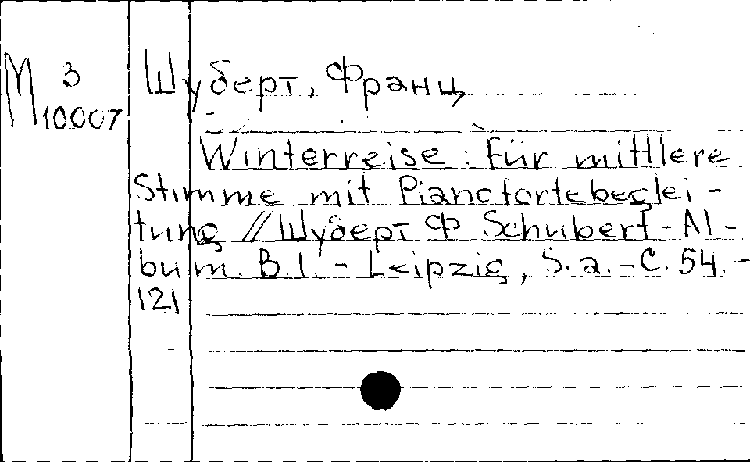 М 3
10007
Шуберт, Франц
Winterreise: Für mittlere
Stimme mit Pianofortebeglei-
tung // Шуберт Ф Schubert-Al-
bum. B.1. - Leipzig, S.a. - С. 54. -
121